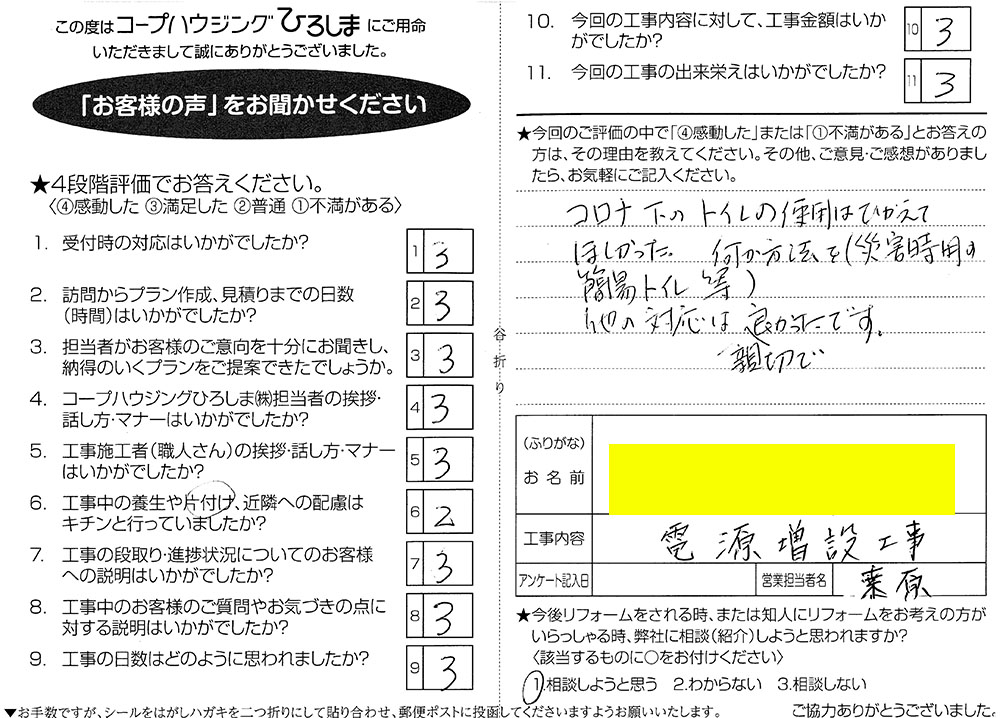 この度はコープハウジングひろしまにご用命
いただきまして誠にありがとうございました。
「お客様の声」をお聞かせください
★4段階評価でお答えください。
〈④感動した ③満足した ②普通 ①不満がある〉
1. 受付時の対応はいかがでしたか?
1 3
2. 訪問からプラン作成、見積りまでの日数
(時間)はいかがでしたか?
2 3
3. 担当者がお客様のご意向を十分にお聞きし、
納得のいくプランをご提案できたでしょうか。
3 3
4. コープハウジングひろしま㈱担当者の挨拶・
話し方・マナーはいかがでしたか?
4 3
5. 工事施工者(職人さん)の挨拶・話し方・マナー
はいかがでしたか?
5 3
6. 工事中の養生や片付け、近隣への配慮は
キチンと行っていましたか?
6 2
7. 工事の段取り・進捗状況についてのお客様
への説明はいかがでしたか?
7 3
8. 工事中のお客様のご質問やお気づきの点に
対する説明はいかがでしたか?
8 3
9. 工事の日数はどのように思われましたか?
9 3
▼お手数ですが、シールをはがしハガキを二つ折りにして貼り合わせ、郵便ポストに投函してくださいますようお願いいたします。
谷折り
10. 今回の工事内容に対して、工事金額はいか
がでしたか?
10 3
11. 今回の工事の出来栄えはいかがでしたか?
11 3
★今回のご評価の中で「④感動した」または「①不満がある」とお答えの
方は、その理由を教えてください。その他、ご意見・ご感想がありまし
たら、お気軽にご記入ください。
コロナ下のトイレの使用はひかえて
ほしかった。 何か方法を(災害時用の
簡易トイレ等)
他の対応は良かったです。
親切で
(ふりがな)
お名前
工事内容 電源増設工事
アンケート記入日 営業担当者名 栗原
★今後リフォームをされる時、または知人にリフォームをお考えの方が
いらっしゃる時、弊社に相談(紹介)しようと思われますか?
〈該当するものに○をお付けください〉
1.相談しようと思う 2.わからない 3.相談しない
ご協力ありがとうございました。